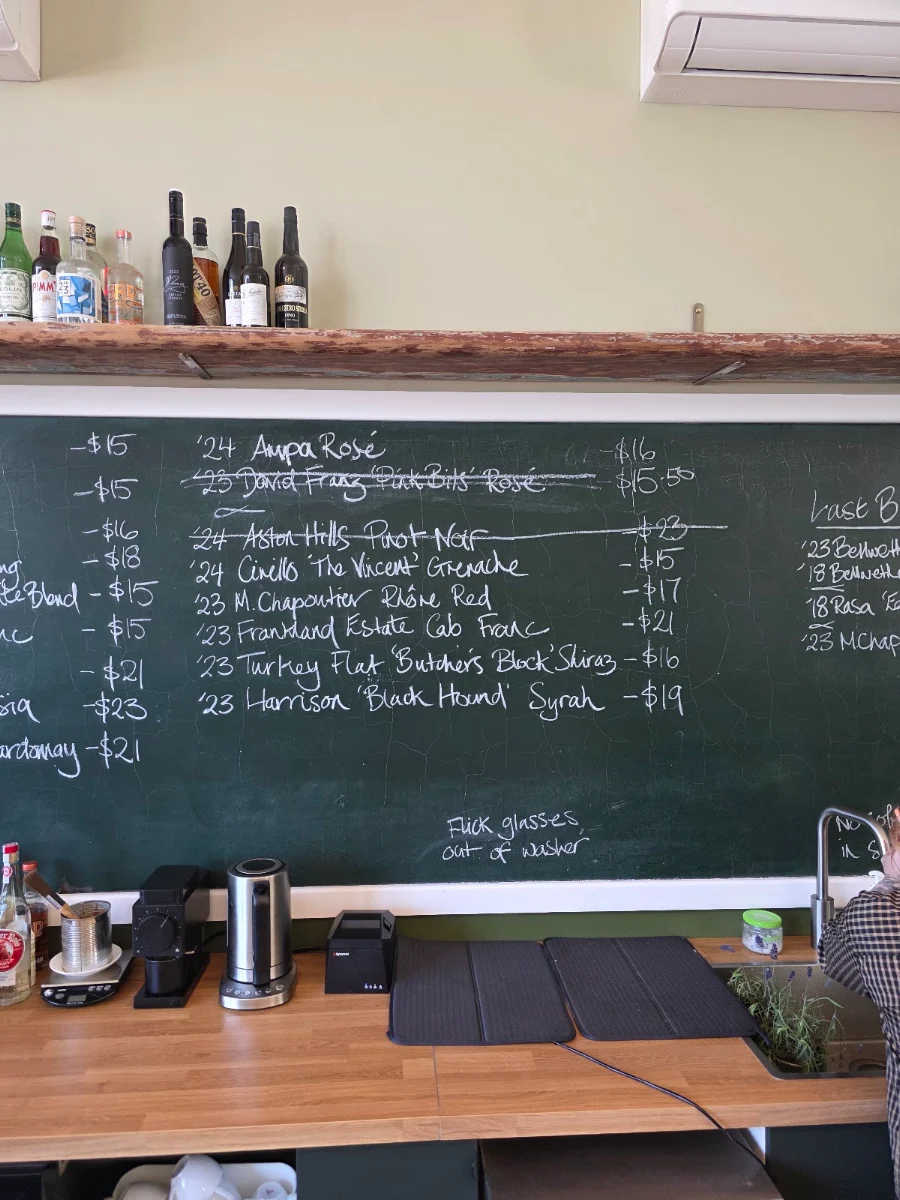 PIMM'S
23
-$15
-$15
-$16
-$18
Blend -$15
-$15
-$21
-$23
-$21
'24 Ampa Rosé -$16
'23 David Franz 'Pink Bits' Rosé $15.50
'24 Aston Hills Pinot Noir -$23
'24 Cirillo 'The Vincent' Grenache -$15
'23 M.Chapoutier Rhône Red -$17
'23 Frankland Estate Cab Franc -$21
'23 Turkey Flat 'Butcher's Block' Shiraz -$16
'23 Harrison 'Black Hound' Syrah -$19
Last B
'23 Bellweth
'18 Bellwethe
'18 Rasa
'23 MChap
Flick glasses
out of washer
No
in S